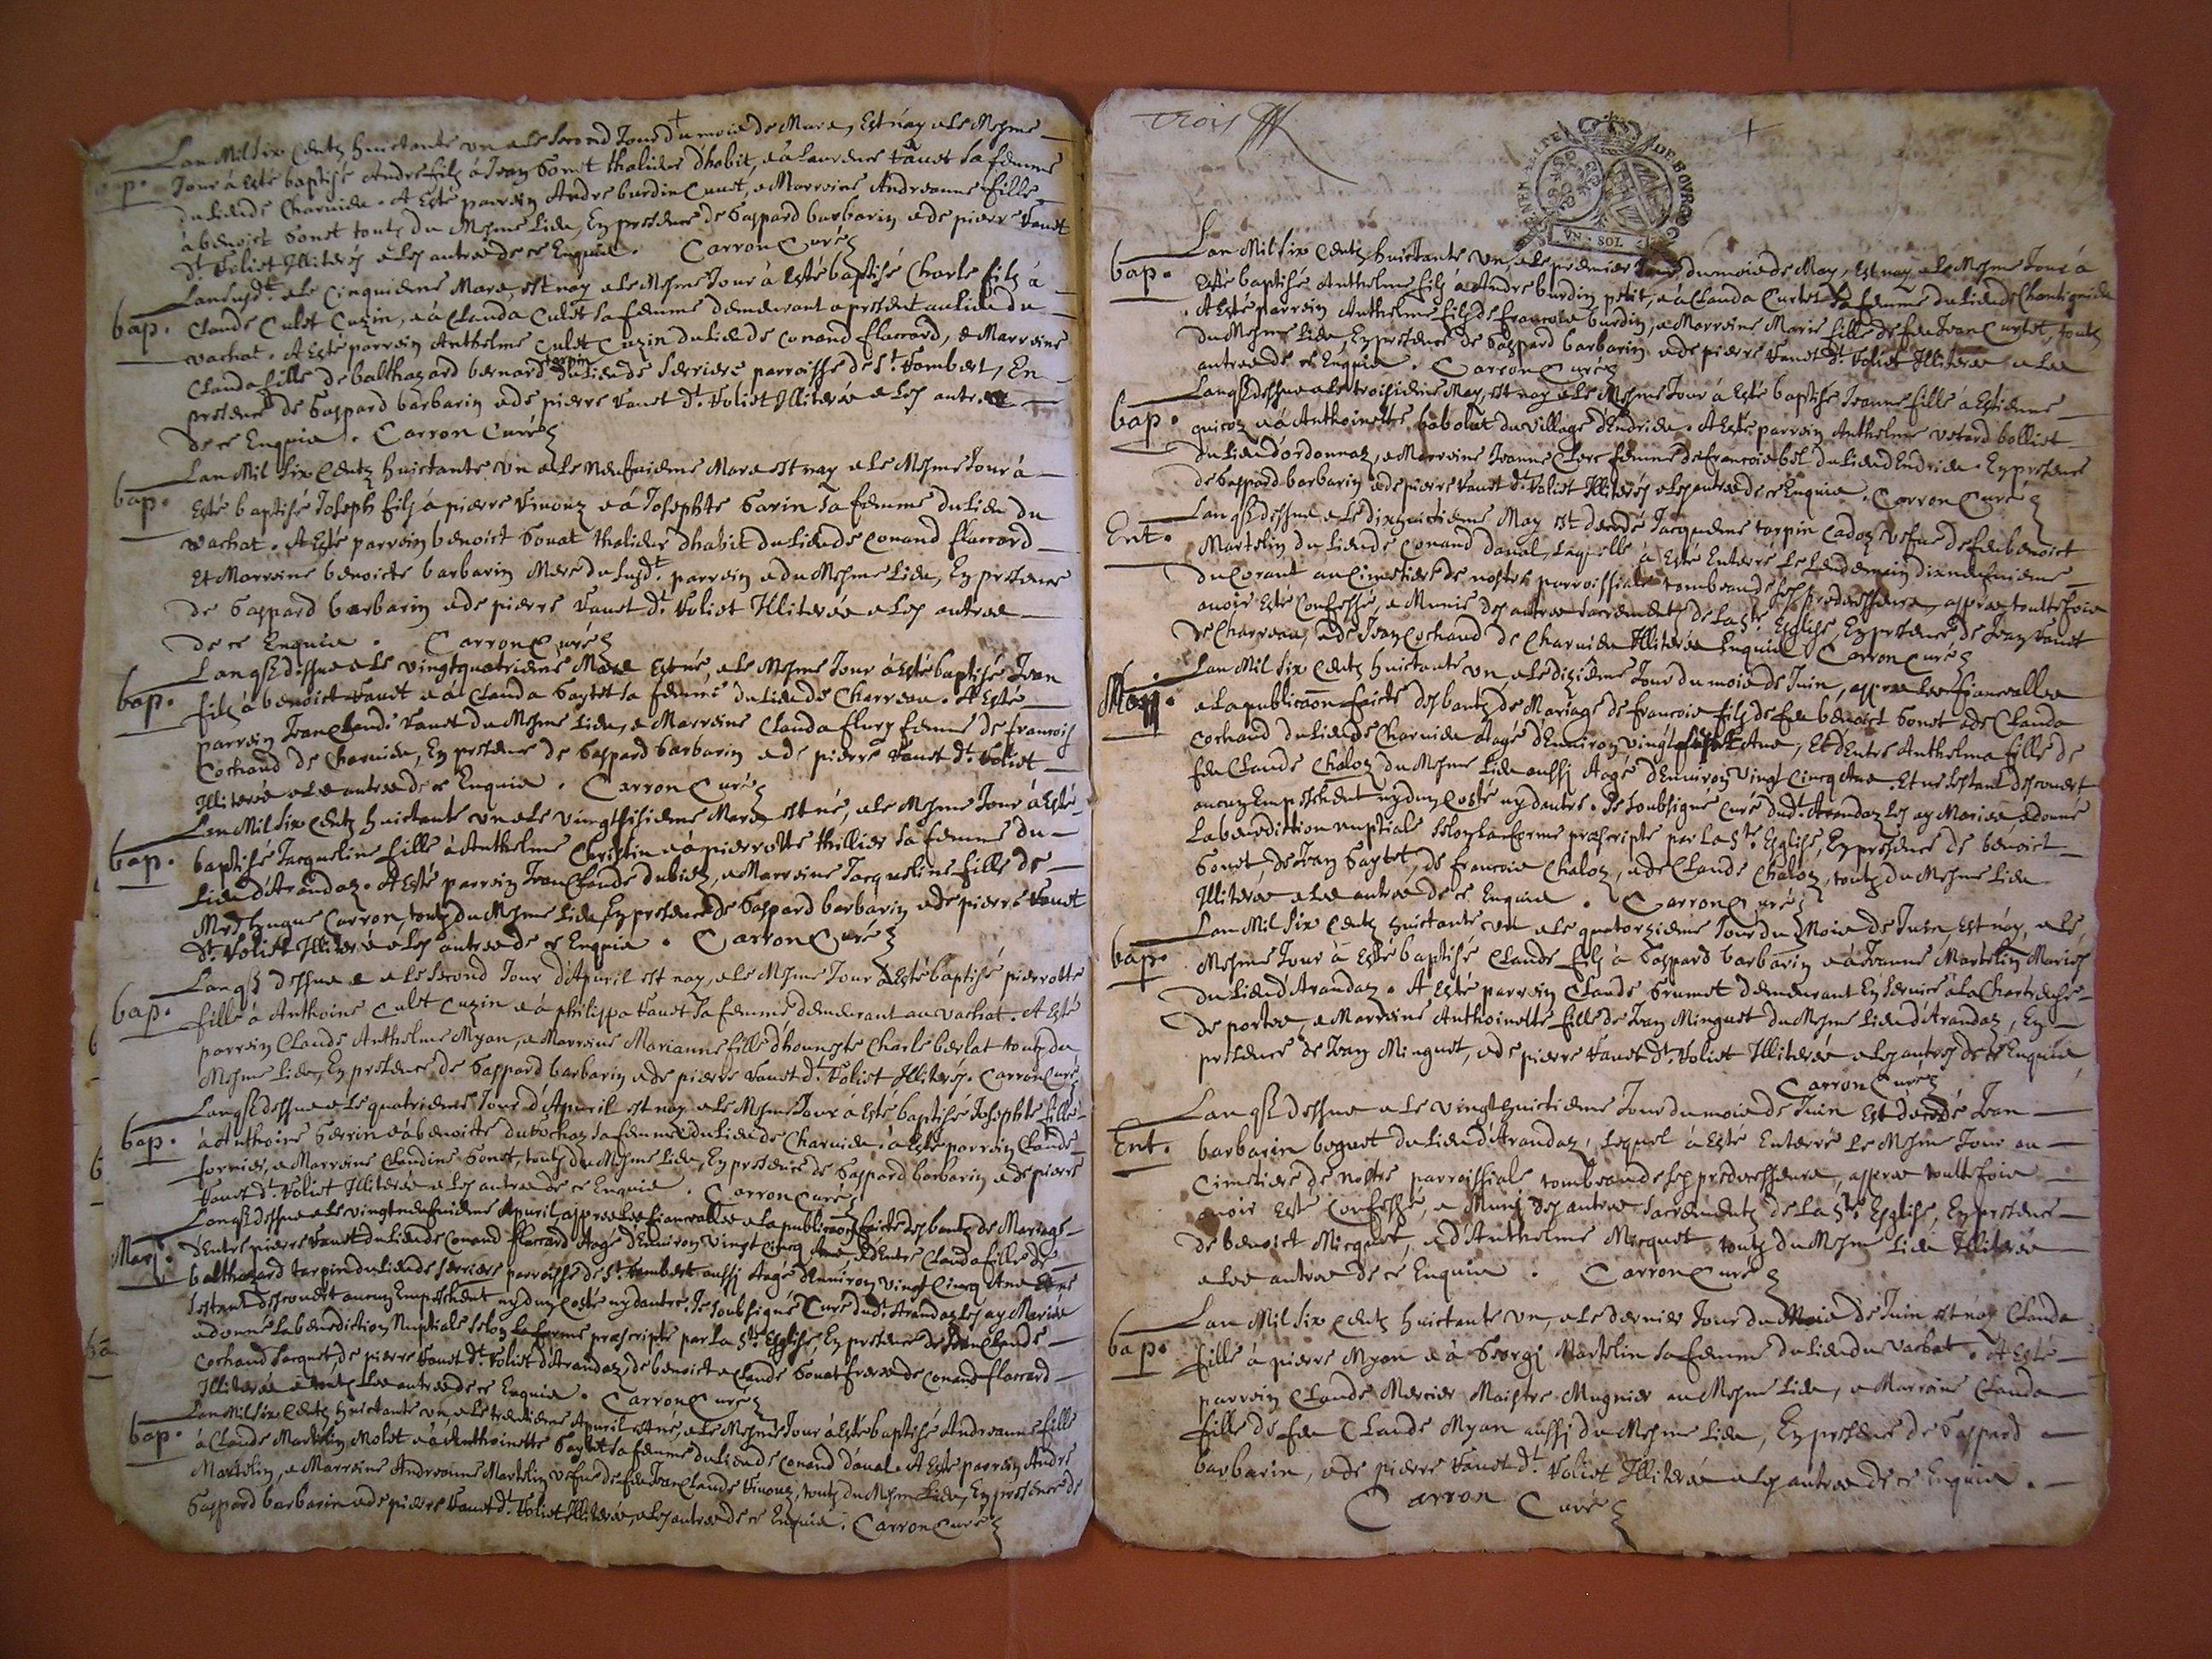 Lan Mil Six Centz huictante un et le second Jour du mois de Mars, Est nay et le Mesme
bap. Jour à Esté baptisé André filz à Jean Gonet tholider d'habit, et à Laurence Vanet sa femme
du Lieu de Charuieu. A Esté parrein André burdin Cunet, et Marreine Andreanne fille
à benoict Gonet toutz du Mesme Lieu, En presence de Gaspard barbarin et de pierre Vanet
dt. Voliet Illiterés et Les autres de ce Enquis. Carron Curé
Lan susdt. et le Cinquieme Mars, est nay et le Mesme Jour à Esté baptisé Charle filz à
bap. Claude Culet Cuzin, et à Clauda Culet sa femme demeurant a present au Lieu du
vachat. A Esté parrein Anthelme Culet Cuzin du Lieu de Conand flaccard, et Marreine
Clauda fille de balthazard bernard tarpin du Lieu de Serriere parroisse de St. Rombert, En
presence de Gaspard barbarin et de pierre Vanet dt. Voliet Illiterés et Les autres
de ce Enquis. Carron Curé
Lan Mil Six Centz huictante un et le Neufuieme Mars est nay et le Mesme Jour à
bap. Esté baptisé Joseph filz à pierre Vinouz et à Josephte Garin sa femme du Lieu du
vachat. A Esté parrein benoict Gonat tholider dhabit du Lieu de Conand flaccard
Et Marreine benoicte barbarin Mere du susdt. parrein et du Mesme Lieu, En presence
de Gaspard barbarin et de pierre Vanet dt. Voliet Illiterés et Les autres
de ce Enquis. Carron Curé
Lan qs dessus et le vingtquatrieme Mars Est né, et le Mesme Jour à esté baptisé Jean
bap. filz à benoict Vanet et à Clauda Gaytet sa femme du Lieu de Charreau. A Esté
parrein Jean Claude Vanet du Mesme Lieu, et Marreine Clauda flury femme de francois
Cochaud de Charuieu, En presence de Gaspard barbarin et de pierre Vanet dt. Voliet
Illiterés et Les autres de ce Enquis. Carron Curé
Lan Mil Six Centz huictante un et le Vingtsisieme Mars est né, et le Mesme Jour à esté
bap. baptisé Jacqueline fille à Anthelme Christin et à pierrotte thillier sa femme du
Lieu d'Arandaz. A Esté parrein Jean Claude dubiez, et Marreine Jacqueline fille de
Mre Hugue Carron, toutz du Mesme Lieu, En presence de Gaspard barbarin et de pierre Vanet
dt. Voliet Illiterés et Les autres de ce Enquis. Carron Curé
Lan qs dessus et le second Jour d'Apuril est nay, et le Mesme Jour à esté baptisé pierrotte
bap. fille à Anthoine Culet Cuzin et à philippa Vanet sa femme demeurant au vachat. A Esté
parrein Claude Anthelme Myan, et Marreine Marianne fille d'honneste Charle berlat toutz du
Mesme Lieu, En presence de Gaspard barbarin et de pierre Vanet dt. Voliet Illiterés. Carron Curé
Lan qs dessus et le quatrieme Jour d'Apuril est nay et le Mesme Jour à Esté baptisé Josephte fille
bap. à Anthoine Perrin et à benoicte duRochaz sa femme du Lieu de Charuieu. à Esté parrein Claude
fornier, et Marreine Claudine Gonet, toutz du Mesme Lieu, En presence de Gaspard barbarin et de pierre
Vanet dt. Voliet Illiterés et Les autres de ce Enquis. Carron Curé
Lan qs dessus et le vingtneufuieme Apuril, appres Les fiancailles et La publicaon faicte des bantz de Mariage
Marj. d'Entre pierre Vanet du Lieu de Conand flaccard Aagé d'Enuiron vingt Cincq Ans, et d'Entre Clauda fille de
balthazard tarpin du Lieu de Serriere parroisse de St. Rambert aussi Aagé d'Enuiron vingt Cincq Ans Et ne
sestant descouuert aucun Empeschement ny d'un Costé ny dautre. Je soubsigné Curé dudt. Arandaz Les ay Mariés
et donné La benediction Nuptiale selon La forme prescripte par La Ste. Esglise, En presence de Jean Claude
Cochaud Jacquet, de pierre Vanet dt. Voliet d'Arandaz, de benoict et Claude Gonat freres de Conand flaccard
Illiterés et toutz Les autres de ce Enquis. Carron Curé
Lan Mil Six Centz huictante un et le trentieme Apuril est né, et le Mesme Jour à esté baptisé Andreanne fille
bap. à Claude Martelin Molet et à Anthoinette Gaytet sa femme du Lieu de Conand d'aual. A Esté parrein André
Martelin, et Marreine Andreanne Martelin vefue de feu Jean Claude Vinouz, toutz du Mesme Lieu, En presence de
Gaspard barbarin et de pierre Vanet dt. Voliet Illiterés, et Les autres de ce Enquis. Carron Curé
trois
GEN ALITE DE BOVRGOG
VN SOL
Lan Mil Six Centz huictante Un, et le premier Jour du mois de May, Est nay et le Mesme Jour à
bap. Esté baptisé Anthelme filz à André burdin petit, et à Clauda Curtet sa femme du Lieu de Chantignieu
. A Esté parrein Anthelme filz de francois burdin, et Marreine Marie fille de feu Jean Curtet, toutz
du Mesme Lieu, En presence de Gaspard barbarin et de pierre Vanet dt. Voliet Illiterés et Les
autres de ce Enquis. Carron Curé
Lan qs dessus et le troisieme May, est nay et le Mesme Jour à Esté baptisé Jeanne fille à Estienne
bap. quicoz et à Anthoinette babolat du village d'Endrieu. A Esté parrein Anthelme vetard bolliet
du Lieu d'ordonnaz, et Marreine Jeanne Clerc femme de francois bel du Lieu d'Endrieu. En presence
de Gaspard barbarin et de pierre Vanet dt. Voliet Illiterés et Les autres de ce Enquis. Carron Curé
Lan qs dessus et le dixhuictieme May est decedé Jacqueme tarpin Cadoz vefue de feu benoict
Ent. Martelin du Lieu de Conand daual, Laquelle à Esté Enterré Le Lendemain dixneufuieme
du Corant au Cimetiere de nostre parroissiale tombeau de ses predecesseurs, appres touttefois
auoir Esté Confessé, et Munie des autres Sacrementz de La Ste. Esglise, En presence de Jean Vanet
de Charreau, et de Jean Cochaud de Charuieu Illiterés Enquis Carron Curé
Lan Mil Six Centz huictante un et le dizieme Jour du mois de Juin, appres Les fiancailles
Marj. et La publicaon faicte des bantz de Mariage de francois filz de feu benoict Gonet et de Clauda
Cochaud du Lieu de Charuieu Aagé d'Enuiron vingt Ans, Et d'Entre Anthelma fille de
feu Claude Chaloz du Mesme Lieu aussi Aagé d'Enuiron Vingt Cincq Ans. Et ne sestant descouuert
aucun Empeschement ny dun Costé ny dautre. Je soubsigné Curé dudt. Arandaz Les ay Mariés et donné
La benedittion nuptiale selon La forme prescripte par La Ste. Esglise, En presence de benoict
Gonet, de Jean Gaytet, de francois Chaloz, et de Claude Chaloz, toutz du Mesme Lieu
Illiterés et Les autres de ce Enquis. Carron Curé
Lan Mil Six Centz huictante un et le quatorzieme Jour du Mois de Juin, Est nay, et Le
bap. Mesme Jour à Esté baptisé Claude filz à Gaspard barbarin et à Jeanne Martelin Mariés
du Lieu d'Arandaz. A Esté parrein Claude Grumet demeurant En Seruice à La Chartreuse
de portes, et Marreine Anthoinette fille de Jean Minguet du Mesme Lieu d'Arandaz, En
presence de Jean Minguet, et de pierre Vanet dt. Voliet Illiterés et Les autres de ce Enquis
Carron Curé
Lan qs dessus et le vingthuictieme Jour du mois de Juin Est decedé Jean
Ent. barbarin boguet du Lieu d'Arandaz, Lequel à Esté Enterré Le Mesme Jour au
Cimetiere de Nostre parroissiale tombeau de ses predecesseurs, appres touttefois
auoir Esté Confessé, et Muni des autres Sacrementz de La Ste. Esglise, En presence
de benoict Micquet, et d'Anthelme Micquet toutz du Mesme Lieu Illiterés
et Les autres de ce Enquis. Carron Curé
Lan Mil Six Centz huictante un, et le dernier Jour du Mois de Juin est nay Clauda
bap. fille à pierre Myan et à Georgi Martelin sa femme du Lieu du Vachat. A Esté
parrein Claude Mercier Maistre Mugnier au Mesme Lieu, et Marreine Clauda
fille de feu Claude Myan aussi du Mesme Lieu, En presence de Gaspard
barbarin, et de pierre Vanet dt. Voliet Illiterés et Les autres de ce Enquis.
Carron Curé